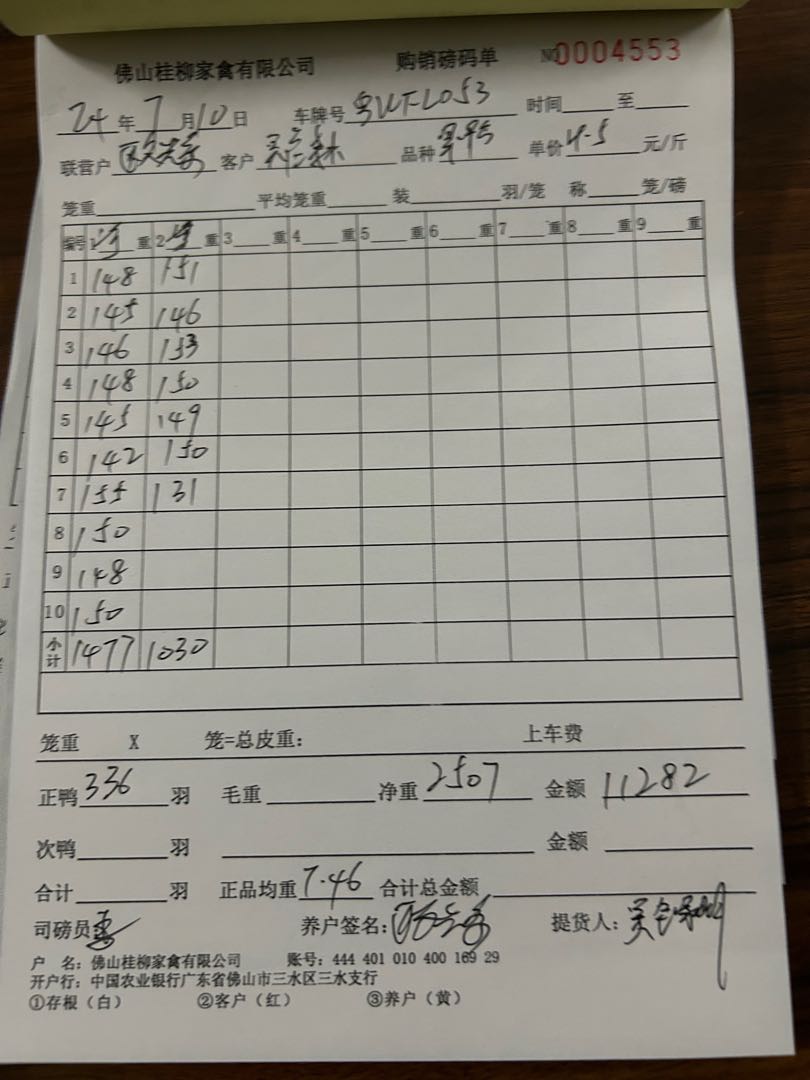 佛山桂柳家禽有限公司 购销磅码单 NO 0004553
24 年 7 月 10 日 车牌号 时间 至
联营户 客户 品种 单价 4.5 元/斤
笼重 平均笼重 装 羽/笼 称 笼/磅
编号 净 重 2 净 重 3 重 4 重 5 重 6 重 7 重 8 重 9 重
1 148 151
2 145 146
3 146 153
4 148 150
5 145 149
6 142 150
7 155 131
8 150
9 148
10 150
小计 1477 1030
笼重 X 笼=总皮重: 上车费
正鸭 336 羽 毛重 净重 2507 金额 11282
次鸭 羽 金额
合计 羽 正品均重 7.46 合计总金额
司磅员 养户签名: 提货人:
户 名: 佛山桂柳家禽有限公司 账号: 444 401 010 400 169 29
开户行: 中国农业银行广东省佛山市三水区三水支行
①存根（白） ②客户（红） ③养户（黄）